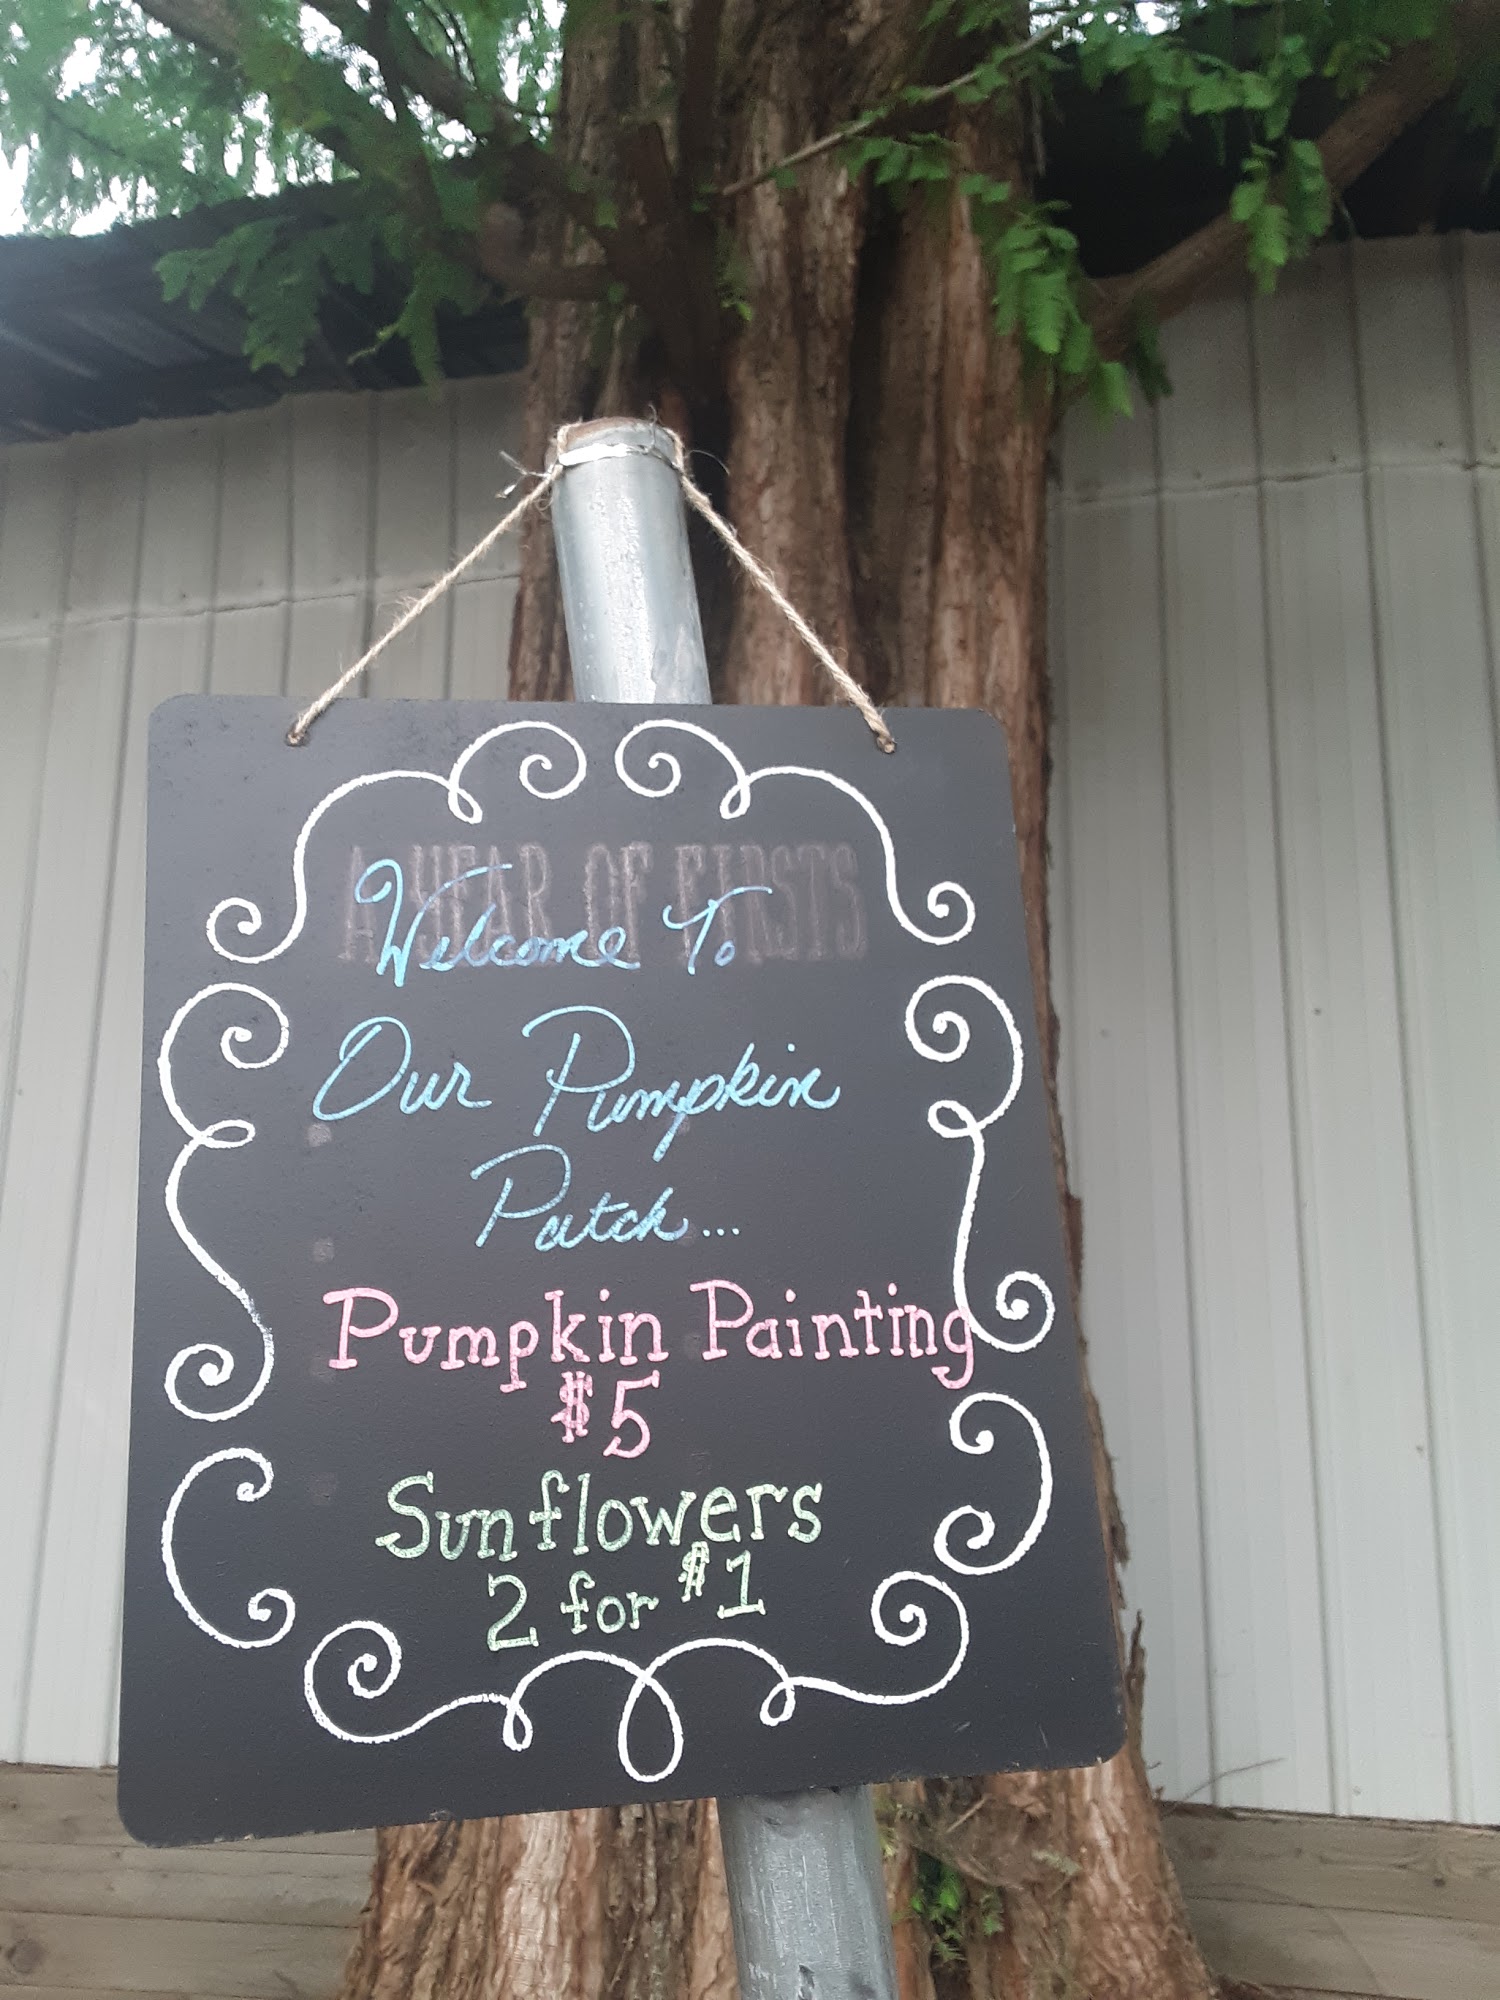 A YEAR OF FIRSTS
Welcome To
Our Pumpkin
Patch...
Pumpkin Painting
$5
Sunflowers
2 for $1